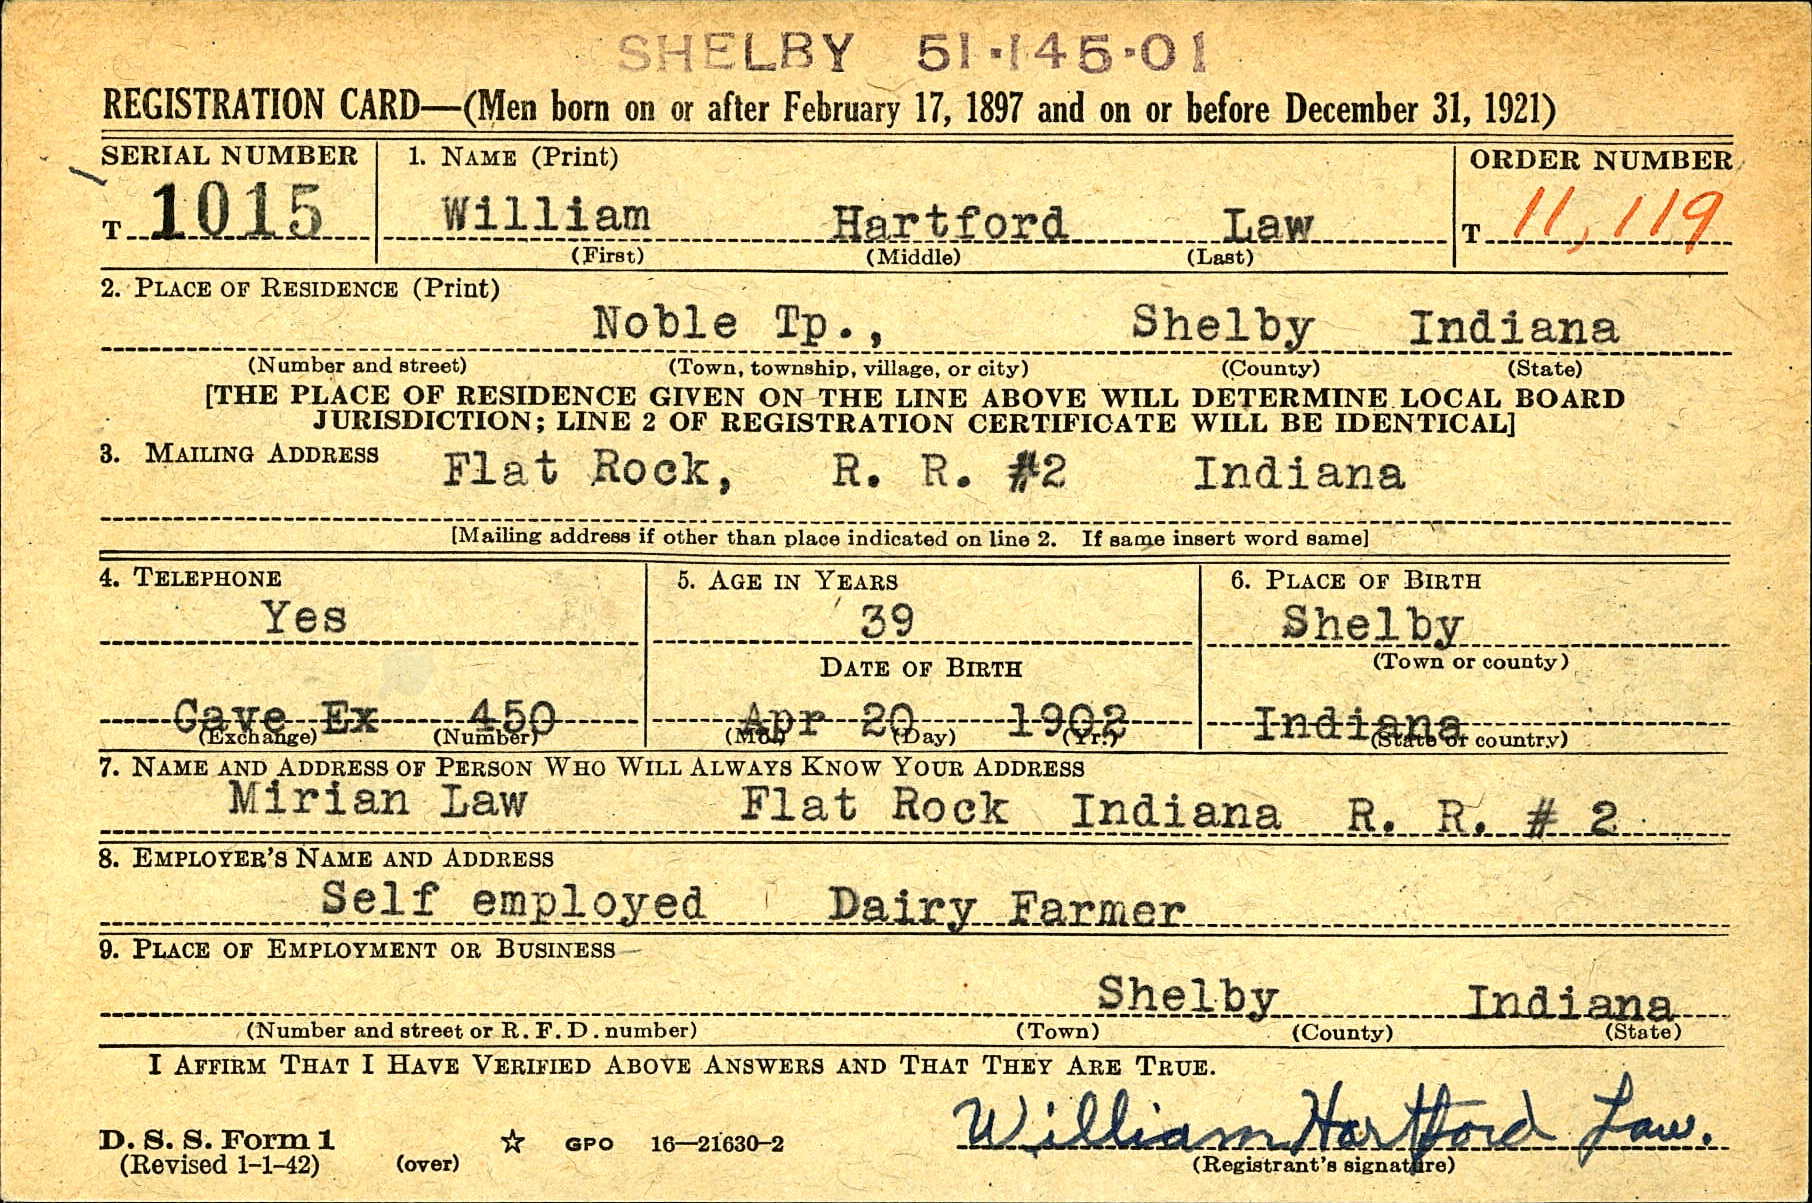 SHELBY 51·145·01
REGISTRATION CARD—(Men born on or after February 17, 1897 and on or before December 31, 1921)
SERIAL NUMBER 1. NAME (Print) ORDER NUMBER
T 1015 William Hartford Law T 11,119
(First) (Middle) (Last)
2. PLACE OF RESIDENCE (Print)
Noble Tp., Shelby Indiana
(Number and street) (Town, township, village, or city) (County) (State)
[THE PLACE OF RESIDENCE GIVEN ON THE LINE ABOVE WILL DETERMINE LOCAL BOARD
JURISDICTION; LINE 2 OF REGISTRATION CERTIFICATE WILL BE IDENTICAL]
3. MAILING ADDRESS Flat Rock, R. R. #2 Indiana
[Mailing address if other than place indicated on line 2. If same insert word same]
4. TELEPHONE 5. AGE IN YEARS 6. PLACE OF BIRTH
Yes 39 Shelby
DATE OF BIRTH (Town or county)
Cave Ex 450 Apr 20 1902 Indiana
(Exchange) (Number) (Mo.) (Day) (Yr.) (State or country)
7. NAME AND ADDRESS OF PERSON WHO WILL ALWAYS KNOW YOUR ADDRESS
Mirian Law Flat Rock Indiana R. R. # 2
8. EMPLOYER'S NAME AND ADDRESS
Self employed Dairy Farmer
9. PLACE OF EMPLOYMENT OR BUSINESS
Shelby Indiana
(Number and street or R. F. D. number) (Town) (County) (State)
I AFFIRM THAT I HAVE VERIFIED ABOVE ANSWERS AND THAT THEY ARE TRUE.
William Hartford Law.
D. S. S. Form 1 ☆ GPO 16—21630-2
(Revised 1-1-42) (over) (Registrant's signature)